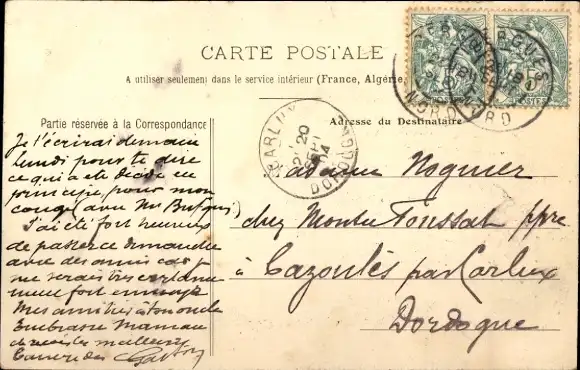 CARTE POSTALE
A utiliser seulement dans le service intérieur (France, Algérie
Partie réservée à la Correspondance
Adresse du Destinataire
Je t'écrirai demain
lundi pour te dire
ce qui a été décidé en
principe pour mon
congé (avec Mr
J'ai été fort heureux
de passer ce dimanche
avec des amis car je
me serais très certaine
ment fort ennuyé
Mes amitiés à
Embrasse Maman
et reçois les meilleurs
baisers de Gaston
Madame Noguier
chez Toussat ppre
à Cazoulès par Carlux
Dordogne
CARLUX
20
SEPT
04
DORDOGNE
BERGUES
NORD
BERGUES
NORD
POSTES